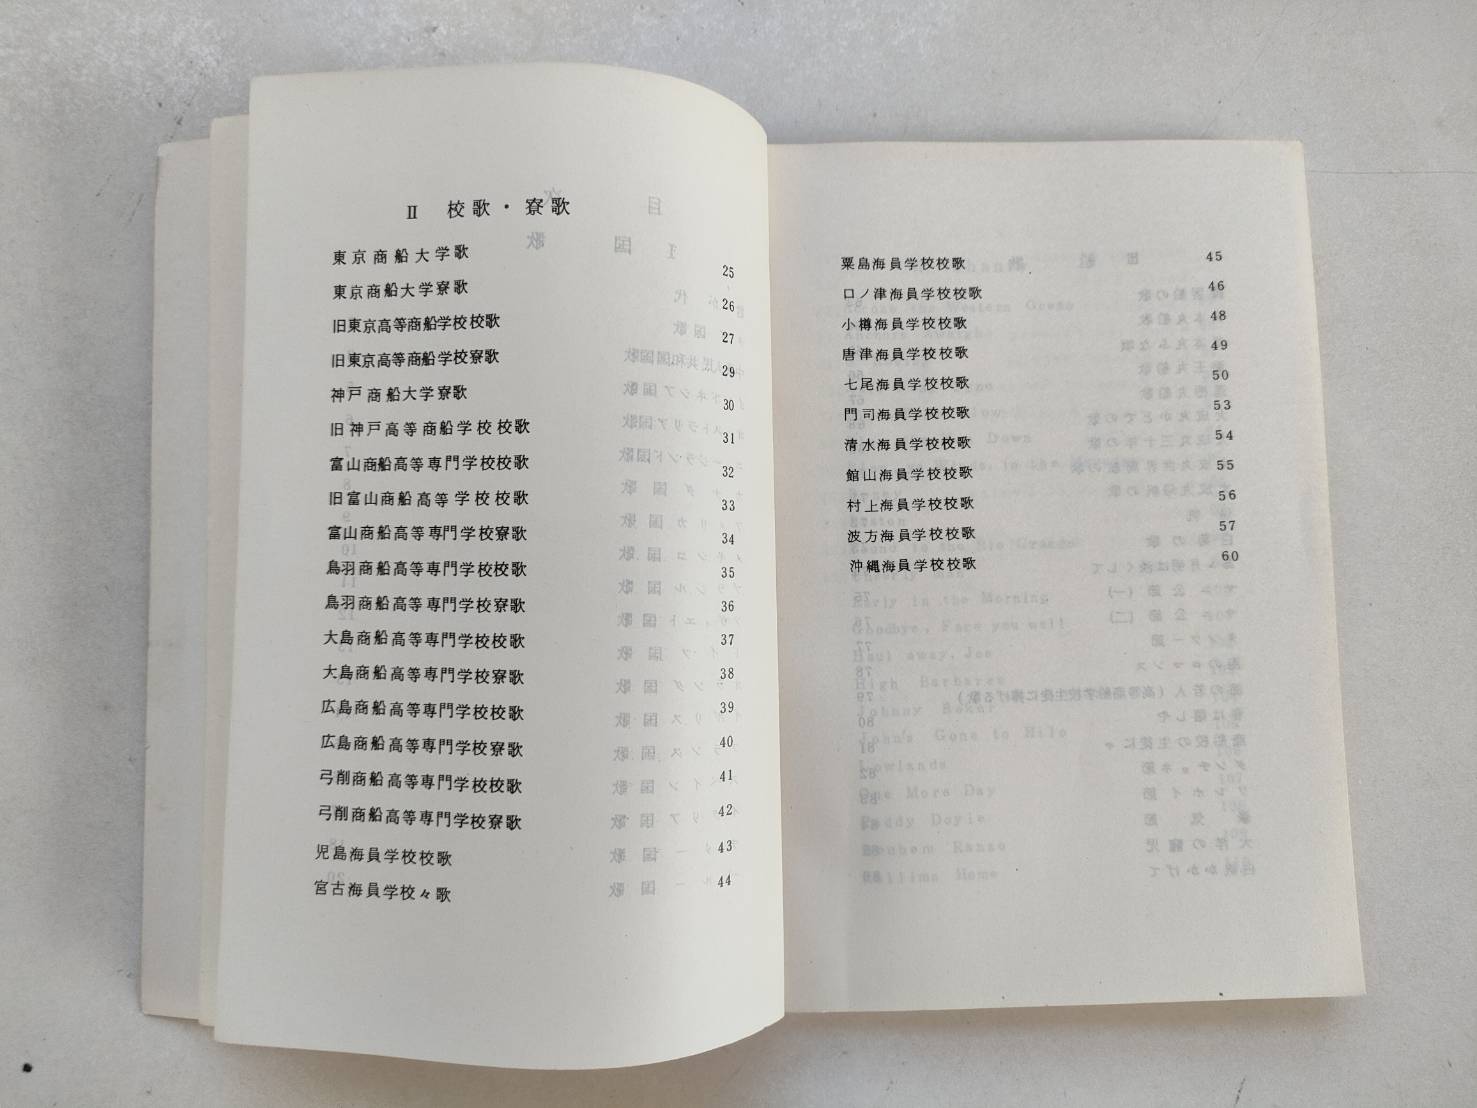 II 校歌・寮歌
東京商船大学歌 25
東京商船大学寮歌 26
旧東京高等商船学校校歌 27
旧東京高等商船学校寮歌 29
神戸商船大学寮歌 30
旧神戸高等商船学校校歌 31
富山商船高等専門学校校歌 32
旧富山商船高等学校校歌 33
富山商船高等専門学校寮歌 34
鳥羽商船高等専門学校校歌 35
鳥羽商船高等専門学校寮歌 36
大島商船高等専門学校校歌 37
大島商船高等専門学校寮歌 38
広島商船高等専門学校校歌 39
広島商船高等専門学校寮歌 40
弓削商船高等専門学校校歌 41
弓削商船高等専門学校寮歌 42
児島海員学校校歌 43
宮古海員学校々歌 44
粟島海員学校校歌 45
口ノ津海員学校校歌 46
小樽海員学校校歌 48
唐津海員学校校歌 49
七尾海員学校校歌 50
門司海員学校校歌 53
清水海員学校校歌 54
館山海員学校校歌 55
村上海員学校校歌 56
波方海員学校校歌 57
沖縄海員学校校歌 60